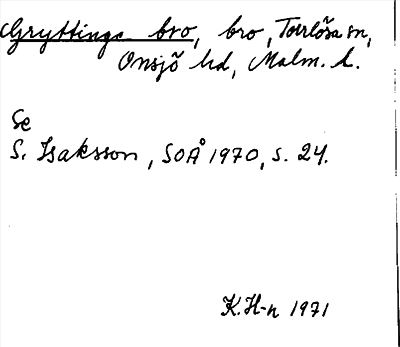 Gryttinge bro, bro, Torrlösa sn,
Onsjö hd, Malm. l.
Se
S. Isaksson, SOÅ 1970, s. 24.
K.H-n 1971